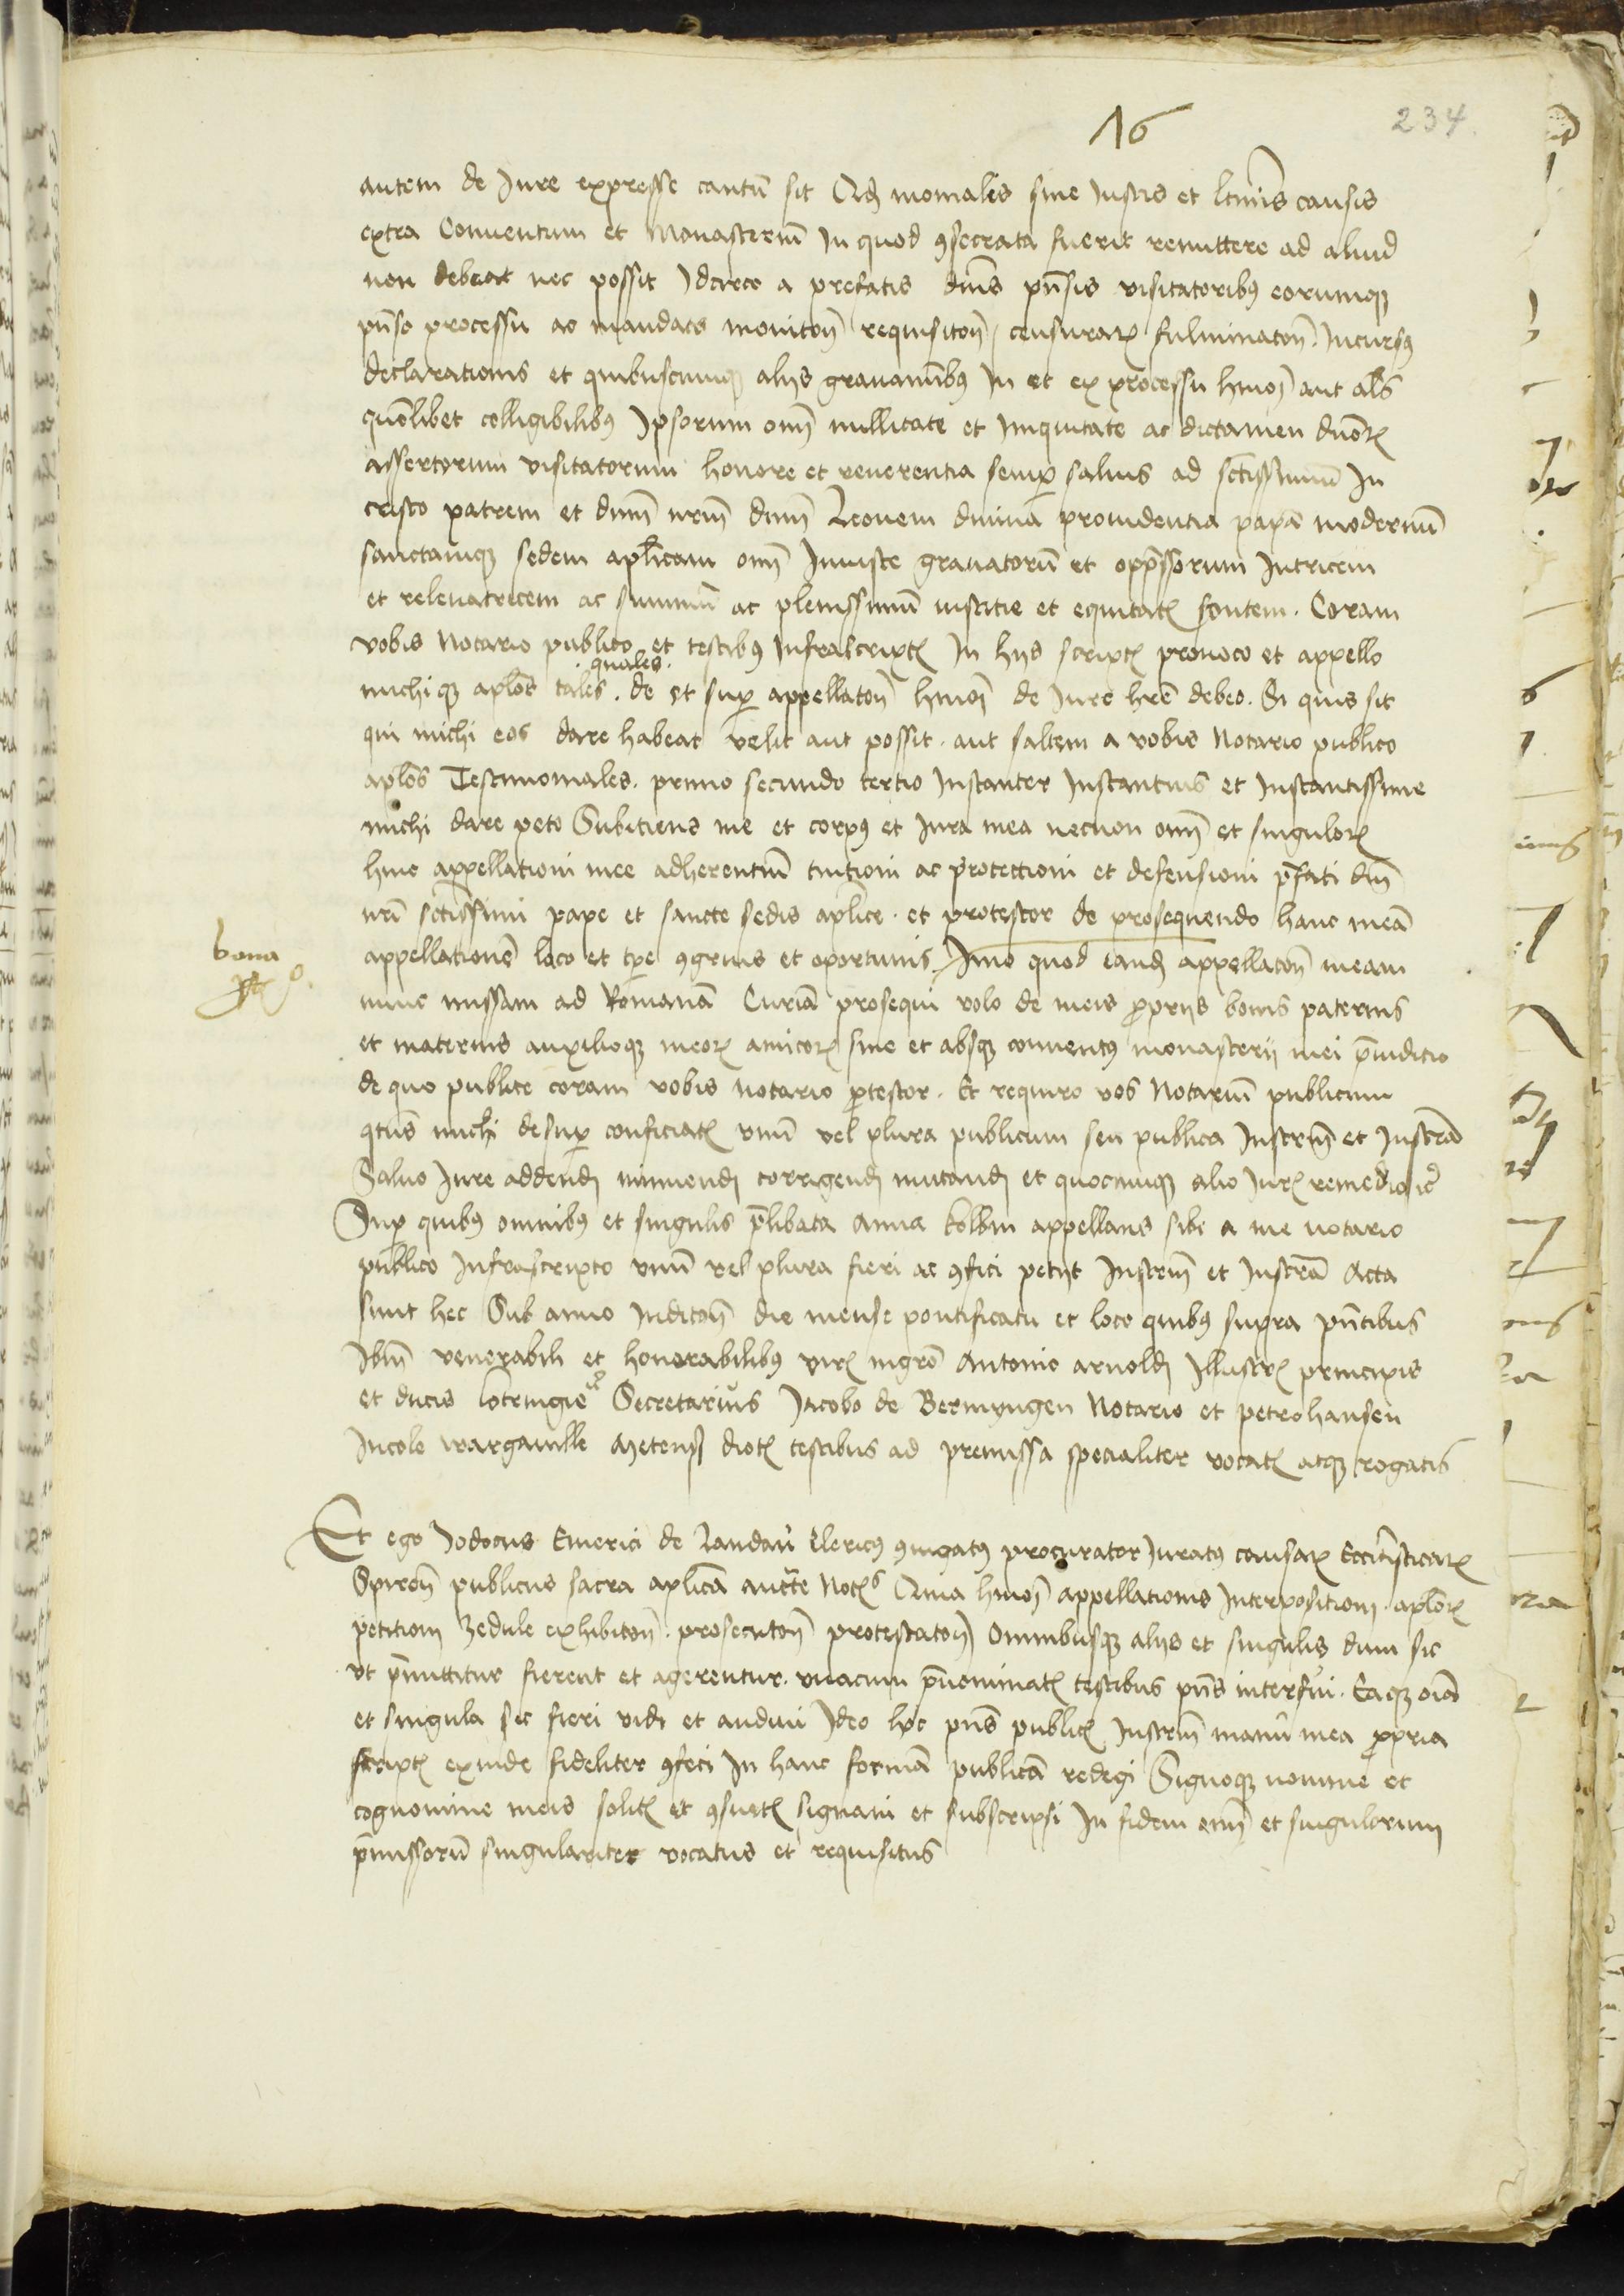 16
234
autem de Jure expresse cautū sit Qđ moniales sine Justis et ltimīs causis
extra Conuentum et Monasteriū In quod ꝯsecrata fuerit remittere ad aliud
non debeat nec possit Idcirco a prefatis dnīs pn̄sis visitatoribꝰ eorumqꝫ
pn̄so processu ac mandatis monitoñ requisitoñ / censuraꝝ fulminatoñ. Incursꝰ
declarationis et quibuscumqꝫ alijs grauaminibꝰ In et ex processu hmōj aut als̄
quōlibet colligibilibꝰ Ipsorum om̄i nullitate et iniquitate ac dictamen dn̄oꝝ
assertorum visitatorum honore et reuerentia semꝑ saluis ad sctīssimū In
cristo patrem et dnm̄ nrm̄ dnm̄ Leonem diuina prouidentia papā modernū
sanctamqꝫ sedem aplicam om̄ Iniuste grauatorū et opp̄ssorum Jutricem
et releuatricem ac summū ac plenissimū iustitie et equitatꝭ fontem. Coram
vobis Notario publico et testibꝰ Infrascriptꝭ In hijs scriptꝭ prouoco et appello
. quales.
michiqꝫ aplōs tales. de et suꝑ appellatoñ hmōj de Jure hrē debeo. Si quis sit
qui michi eos dare habeat velit aut possit. aut saltem a vobis Notario publico
aplōs Testimoniales. primo secundo tertio Instanter Instantius et Instantissime
michi dare peto Subitiens me et corpꝰ et Jura mea necnon om̄ et singuloꝝ
huic appellationi mee adherentiū tuitioni ac protectioni et defensioni p̄fati dnī
nrī sctīssimi pape et sancte sedis aplice. et protestor de prosequendo hanc meā
appellationē loco et tp̄e ꝯgruis et oportunis / Imo quod eandē appellatoñ meam
bona
nunc missam ad Romanā Curiā prosequi volo de meis proprijs bonis paternis
et maternis auxilioqꝫ meoꝝ amicoꝝ sine et absqꝫ conuentꝰ monasterij mei p̄iuditio
de quo publice coram vobis notario ꝓtestor. Et requiro vos Notariū publicum
qtūs michi desuꝑ conficiatꝭ vnū vel plura publicum seu publica Instrm̄ et Instrā
Saluo Jure addendj minuendj corrigendj mutandj et quocumqꝫ alio Jurꝭ remedio
Suꝑ quibꝰ omnibꝰ et singulis p̄libata Anna kolbin appellans sibi a me notario
publico Infrascripto vnū vel plura fieri ac ꝯfici petijt Instrm̄ et Instrā Acta
sunt hec Sub anno Inditoñ die mense pontificatu et loco quibꝰ supra pn̄tibus
Ibm̄ venerabili et honorabilibꝰ virꝭ mgrō Antonio arnoldj Illustrꝭ principis
et ducis lotringie Secretarius Jacobo de Bermyngen Notario et petro hansen
Incole wargauille Metensꝭ diotꝭ testibus ad premissa specialiter vocatꝭ atqꝫ rogatis
Et ego Jodocus Emerici de Landaw Clericꝰ ꝯiugatꝰ procurator Juratꝰ causaꝝ Eccl̄iasticaꝝ
Spireñ publicus sacra aplicā auctte Notꝭ Quia hmōj appellationis Interpositioni. aploꝝ
petitioni zedule exhibitoñ. prosecutoñ protestatoñ Omnibusqꝫ alijs et singulis dum sic
vt p̄mittitur fierent et agerentur. vnacum p̄nominatꝭ testibus pn̄s interfui. Eaqꝫ oīa
et singula sic fieri vidi et audiui Ideo hoc pn̄s publicꝭ Instrm̄ manu mea propria
scriptꝭ exinde fideliter ꝯfeci In hanc formā publicā redegi Signoqꝫ nomine et
cognomine meis solitꝭ et ꝯsuetꝭ signaui et subscripsi In fidem om̄ et singulorum
p̄missorū singulariter vocatus et requisitus